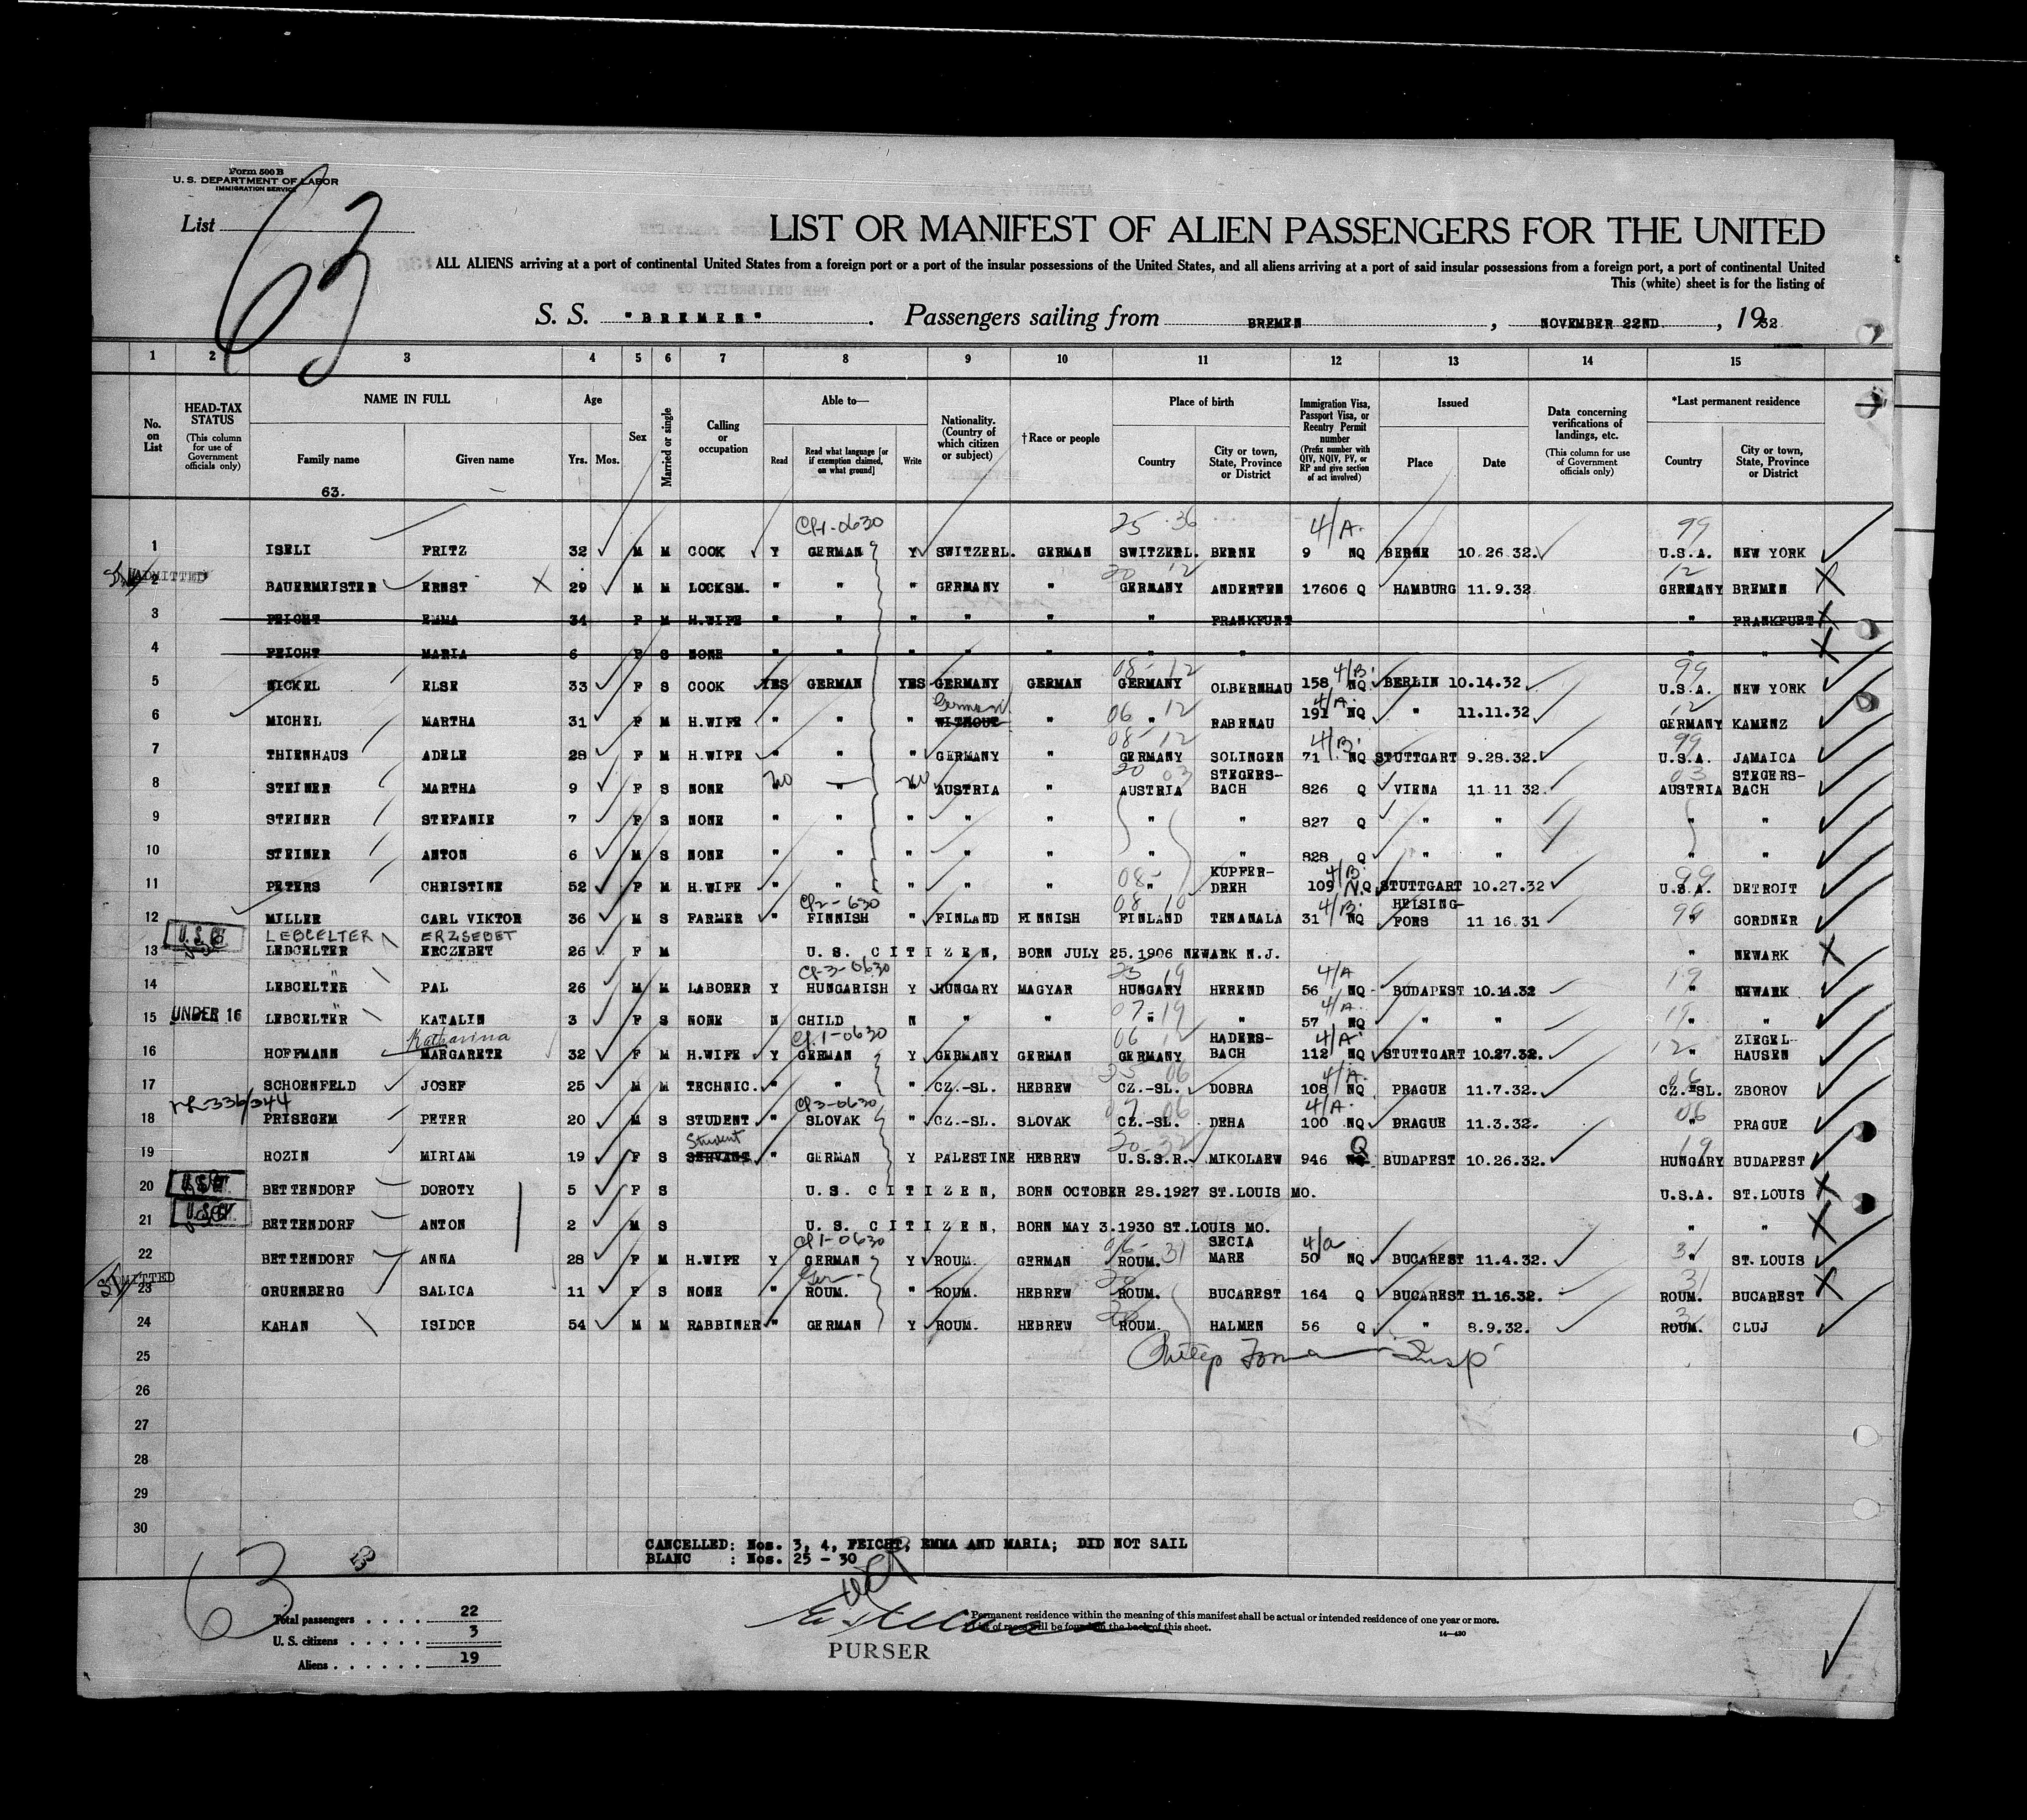 Form 500 B
U. S. DEPARTMENT OF LABOR
IMMIGRATION SERVICE
List 63
LIST OR MANIFEST OF ALIEN PASSENGERS FOR THE UNITED
ALL ALIENS arriving at a port of continental United States from a foreign port or a port of the insular possessions of the United States, and all aliens arriving at a port of said insular possessions from a foreign port, a port of continental United
This (white) sheet is for the listing of
S. S. "BREMEN". Passengers sailing from BREMEN, NOVEMBER 22ND, 1932
1 2 3 4 5 6 7 8 9 10 11 12 13 14 15
No. on List
HEAD-TAX STATUS (This column for use of Government officials only)
NAME IN FULL Family name Given name
Age Yrs. Mos.
Sex
Married or single
Calling or occupation
Able to— Read Read what language [or if exemption claimed, on what ground] Write
Nationality. (Country of which citizen or subject)
†Race or people
Place of birth Country City or town, State, Province or District
Immigration Visa, Passport Visa, or Reentry Permit number (Prefix number with QIV, NQIV, PV, or RP and give section of act involved)
Issued Place Date
Data concerning verifications of landings, etc. (This column for use of Government officials only)
*Last permanent residence Country City or town, State, Province or District
63.
25 36 4/A. 99
1 ISELI FRITZ 32 M M COOK Y GERMAN Y SWITZERL. GERMAN SWITZERL. BERNE 9 NQ BERNE 10.26.32. U.S.A. NEW YORK
ADMITTED 20 12 12
2 BAUERMEISTER ERNST X 29 M M LOCKSM. " " " GERMANY " GERMANY ANDERTEN 17606 Q HAMBURG 11.9.32 GERMANY BREMEN X
3 FEICHT EMMA 34 F M H.WIFE " " " " " " FRANKFURT " FRANKFURT X
4 FEICHT MARIA 6 F S NONE " " " " " " " " " X
08-12 4/B. 99
5 NICKEL ELSE 33 F S COOK YES GERMAN YES GERMANY GERMAN GERMANY OLBERNHAU 158 NQ BERLIN 10.14.32 U.S.A. NEW YORK
German 06 12 4/A. 12
6 MICHEL MARTHA 31 F M H.WIFE " " " WITHOUT " " RABENAU 191 NQ " 11.11.32 GERMANY KAMENZ
08-12 4/B. 99
7 THIENHAUS ADELE 28 F M H.WIFE " " " GERMANY " GERMANY SOLINGEN 71 NQ STUTTGART 9.28.32. U.S.A. JAMAICA
no — no 20 03 03
8 STEINER MARTHA 9 F S NONE " " " AUSTRIA " AUSTRIA STEGERS-BACH 826 Q VIENA 11 11 32. AUSTRIA STEGERS-BACH
9 STEINER STEFANIE 7 F S NONE " " " " " " " 827 Q " " " "
10 STEINER ANTON 6 M S NONE " " " " " " " 828 Q " " " "
08- 4/B. 99
11 PETERS CHRISTINE 52 F M H.WIFE " " " " " " KUPFER-DREH 109 N.Q. STUTTGART 10.27.32 U.S.A. DETROIT
08 10 4/B. 99
12 MILLER CARL VIKTOR 36 M S FARMER " FINNISH " FINLAND FINNISH FINLAND TENANALA 31 NQ HELSING-FORS 11 16.31 " GORDNER
U.S.C. LEBCELTER ERZSEBET
13 LEDCELTER ERCZEBET 26 F M U. S. CITIZEN, BORN JULY 25.1906 NEWARK N.J. " NEWARK X
4/A 19
14 LEBCELTER PAL 26 M M LABORER Y HUNGARISH Y HUNGARY MAGYAR HUNGARY HEREND 56 NQ BUDAPEST 10.14.32 " NEWARK
07-19 4/A. 19
15 UNDER 16 LEBCELTER KATALIN 3 F S NONE N CHILD N " " " " 57 NQ " " " "
Katharina 06 12 4/A. 12
16 HOFFMANN MARGARETE 32 F M H.WIFE Y GERMAN Y GERMANY GERMAN GERMANY HADERS-BACH 112 NQ STUTTGART 10.27.32. " ZIEGEL-HAUSEN
4/A. 06
17 SCHOENFELD JOSEF 25 M M TECHNIC. " " " CZ.-SL. HEBREW CZ.-SL. DOBRA 108 NQ PRAGUE 11.7.32. CZ.-SL. ZBOROV
07 06 4/A. 06
18 PRISEGEM PETER 20 M S STUDENT " SLOVAK " CZ.-SL. SLOVAK CZ.-SL. DEHA 100 NQ PRAGUE 11.3.32. " PRAGUE
Student 20-32 Q 19
19 ROZIN MIRIAM 19 F S SERVANT " GERMAN Y PALESTINE HEBREW U.S.S.R. MIKOLAEW 946 NQ BUDAPEST 10.26.32. HUNGARY BUDAPEST
20 U.S.C. BETTENDORF DOROTY 5 F S U. S. CITIZEN, BORN OCTOBER 28.1927 ST.LOUIS MO. U.S.A. ST.LOUIS X
21 U.S.C. BETTENDORF ANTON 2 M S U. S. CITIZEN, BORN MAY 3.1930 ST.LOUIS MO. " " X
06-31 4/a 31
22 BETTENDORF ANNA 28 F M H.WIFE Y GERMAN Y ROUM. GERMAN ROUM. SECIA MARE 50 NQ BUCAREST 11.4.32. " ST.LOUIS
ADMITTED Ger 20 31
23 GRUENBERG SALICA 11 F S NONE " ROUM. " ROUM. HEBREW ROUM. BUCAREST 164 Q BUCAREST 11.16.32. ROUM. BUCAREST X
24 KAHAN ISIDOR 54 M M RABBINER " GERMAN Y ROUM. HEBREW ROUM. HALMEN 56 Q " 8.9.32. ROUM. CLUJ
25 Philip Insp
26
27
28
29
30
CANCELLED: Nos. 3, 4, FEICHT, EMMA AND MARIA; DID NOT SAIL
BLANC : Nos. 25 - 30
63
Total passengers . . . . 22
U. S. citizens . . . . . 3
Aliens . . . . . . 19
PURSER
*Permanent residence within the meaning of this manifest shall be actual or intended residence of one year or more.
†List of races will be found on the back of this sheet.
14—430